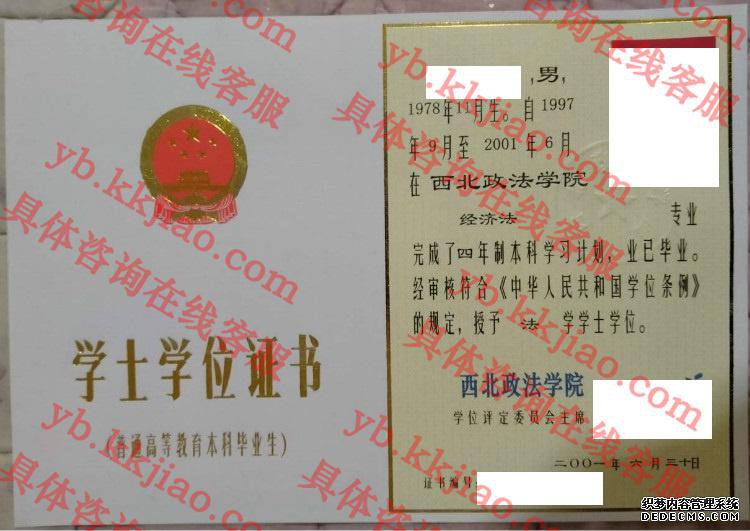 学士学位证书
(普通高等教育本科毕业生)
,男,
1978年11月生。自1997
年9月至2001年6月
在西北政法学院
经济法 专业
完成了四年制本科学习计划,业已毕业。
经审核符合《中华人民共和国学位条例》
的规定,授予 法 学学士学位。
西北政法学院
学位评定委员会主席
二〇〇一年六月三十日
证书编号:
具体咨询在线客服
yb.kkjiao.com
具体咨询在线客服
yb.kkjiao.com
具体咨询在线客服
yb.kkjiao.com
具体咨询在线客服
yb.kkjiao.com
具体咨询在线客服
yb.kkjiao.com
具体咨询在线客服
织梦内容管理系统
DEDECMS.COM